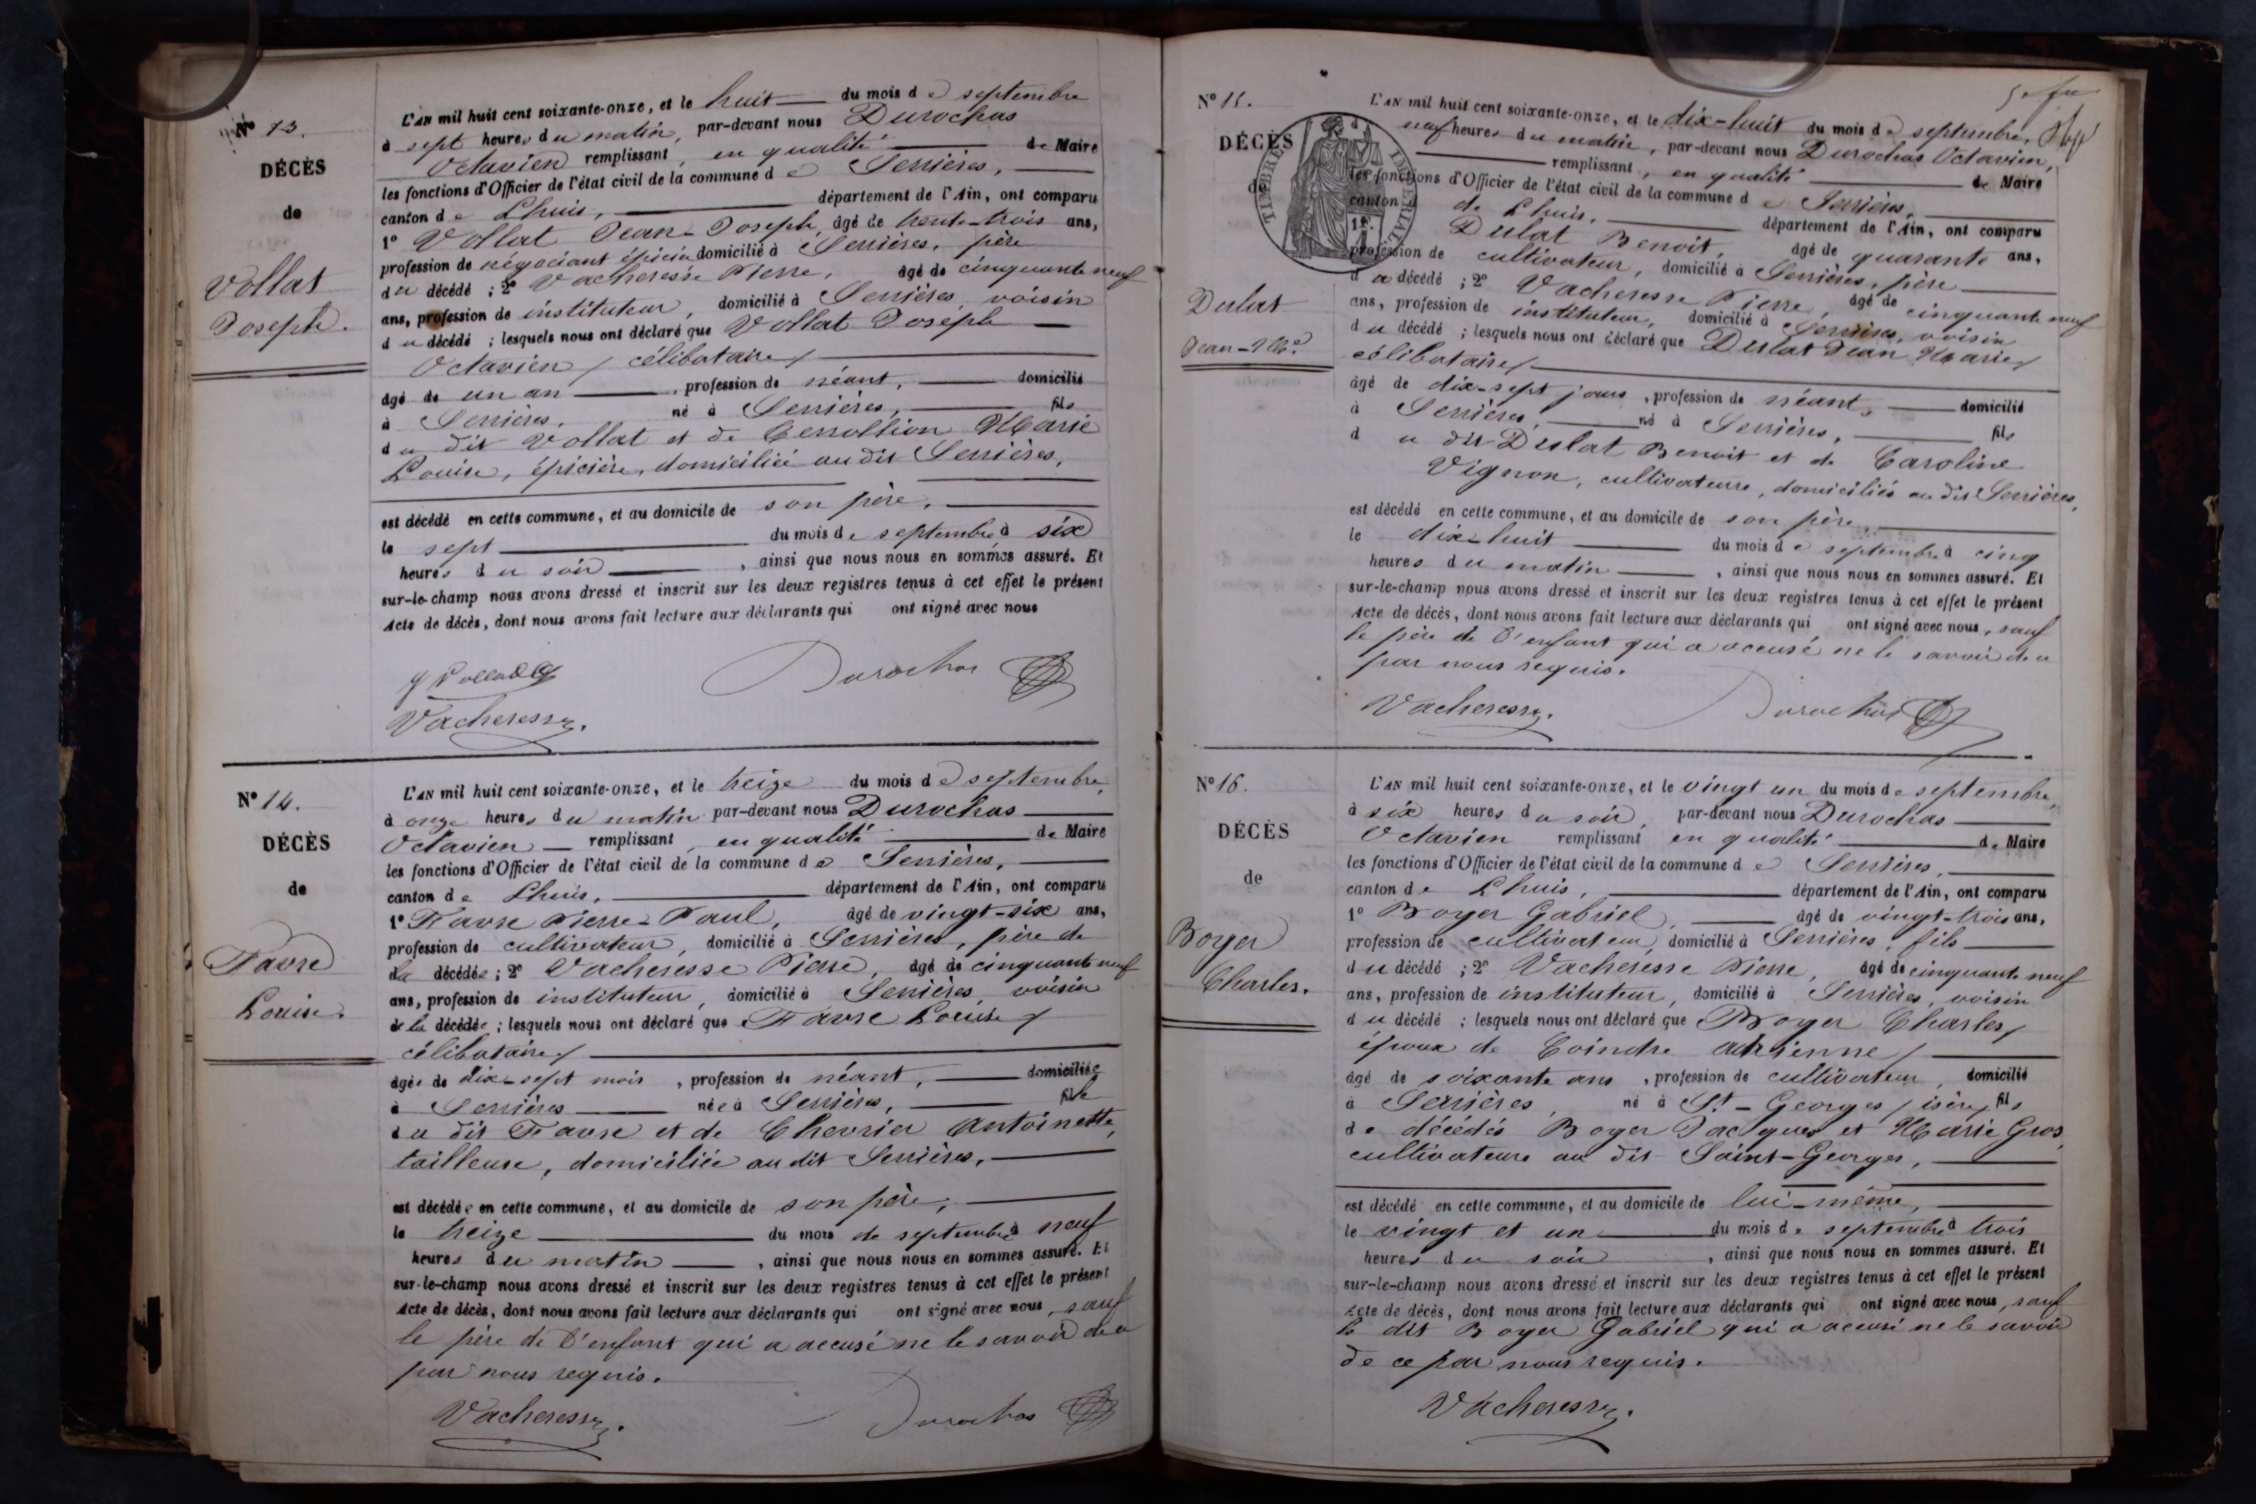 N° 13.
DÉCÈS
de
Vollat
Joseph.
L'AN mil huit cent soixante-onze, et le huit du mois de septembre
à sept heures du matin, par-devant nous Durochas
Octavien remplissant, en qualité de Maire
les fonctions d'Officier de l'état civil de la commune de Serrières,
canton de Lhuis, département de l'Ain, ont comparu
1° Vollat Jean-Joseph, âgé de trente-trois ans,
profession de négociant épicier domicilié à Serrières, père
du décédé ; 2° Vacheresse Pierre, âgé de cinquante neuf
ans, profession de instituteur, domicilié à Serrières, voisin
du décédé ; lesquels nous ont déclaré que Vollat Joseph
Octavien / célibataire /
âgé de un an, profession de néant, domicilié
à Serrières, né à Serrières, fils
du dit Vollat et de Marie
Louise, épicière, domiciliée au dit Serrières,
est décédé en cette commune, et au domicile de son père,
le sept du mois de septembre à six
heures du soir, ainsi que nous nous en sommes assuré. Et
sur-le-champ nous avons dressé et inscrit sur les deux registres tenus à cet effet le présent
Acte de décès, dont nous avons fait lecture aux déclarants qui ont signé avec nous
Durochas
Vacheresse.
N° 14.
DÉCÈS
de
Favre
Louise.
L'AN mil huit cent soixante-onze, et le treize du mois de septembre,
à onze heures du matin par-devant nous Durochas
Octavien remplissant, en qualité de Maire
les fonctions d'Officier de l'état civil de la commune de Serrières,
canton de Lhuis, département de l'Ain, ont comparu
1° Favre Pierre-Paul, âgé de vingt-six ans,
profession de cultivateur, domicilié à Serrières, père de
la décédée ; 2° Vacheresse Pierre, âgé de cinquante neuf
ans, profession de instituteur, domicilié à Serrières, voisin
de la décédée ; lesquels nous ont déclaré que Favre Louise /
célibataire /
âgée de dix-sept mois, profession de néant, domiciliée
à Serrières née à Serrières, fille
du dit Favre et de Chevrier Antoinette,
tailleuse, domiciliée au dit Serrières,
est décédée en cette commune, et au domicile de son père,
le treize du mois de septembre à neuf
heures du matin, ainsi que nous nous en sommes assuré. Et
sur-le-champ nous avons dressé et inscrit sur les deux registres tenus à cet effet le présent
Acte de décès, dont nous avons fait lecture aux déclarants qui ont signé avec nous, sauf
le père de l'enfant qui a accusé ne le savoir de ce
par nous requis.
Vacheresse.
Durochas
N° 15.
DÉCÈS
de
Dulat
Jean-Mie.
TIMBRE IMPÉRIAL
L'AN mil huit cent soixante-onze, et le dix-huit du mois de septembre,
neuf heures du matin, par-devant nous Durochas Octavien,
remplissant, en qualité de Maire
les fonctions d'Officier de l'état civil de la commune de Serrières,
canton de Lhuis, département de l'Ain, ont comparu
Dulat Benoit, âgé de quarante ans,
profession de cultivateur, domicilié à Serrières, père
du décédé ; 2° Vacheresse Pierre, âgé de cinquante neuf
ans, profession de instituteur, domicilié à Serrières, voisin
du décédé ; lesquels nous ont déclaré que Dulat Jean Marie /
célibataire /
âgé de dix-sept jours, profession de néant, domicilié
à Serrières, né à Serrières, fils
du dit Dulat Benoit et de Caroline
Vignon, cultivateurs, domiciliés au dit Serrières,
est décédé en cette commune, et au domicile de son père,
le dix-huit du mois de septembre à cinq
heures du matin, ainsi que nous nous en sommes assuré. Et
sur-le-champ nous avons dressé et inscrit sur les deux registres tenus à cet effet le présent
Acte de décès, dont nous avons fait lecture aux déclarants qui ont signé avec nous, sauf
le père de l'enfant qui a accusé ne le savoir de ce
par nous requis.
Vacheresse.
Durochas
N° 16.
DÉCÈS
de
Boyer
Charles.
L'AN mil huit cent soixante-onze, et le vingt un du mois de septembre,
à six heures du soir, par-devant nous Durochas
Octavien remplissant en qualité de Maire
les fonctions d'Officier de l'état civil de la commune de Serrières,
canton de Lhuis, département de l'Ain, ont comparu
1° Boyer Gabriel, âgé de vingt-trois ans,
profession de cultivateur, domicilié à Serrières, fils
du décédé ; 2° Vacheresse Pierre, âgé de cinquante neuf
ans, profession de instituteur, domicilié à Serrières, voisin
du décédé ; lesquels nous ont déclaré que Boyer Charles /
époux de Cointre Adrienne /
âgé de soixante ans, profession de cultivateur, domicilié
à Serrières, né à St-Georges / isère / fils
de décédés Boyer Jacques et Marie Gros,
cultivateurs au dit Saint-Georges,
est décédé en cette commune, et au domicile de lui-même,
le vingt et un du mois de septembre à trois
heures du soir, ainsi que nous nous en sommes assuré. Et
sur-le-champ nous avons dressé et inscrit sur les deux registres tenus à cet effet le présent
Acte de décès, dont nous avons fait lecture aux déclarants qui ont signé avec nous, sauf
le dit Boyer Gabriel qui a accusé ne le savoir
de ce par nous requis.
Vacheresse.